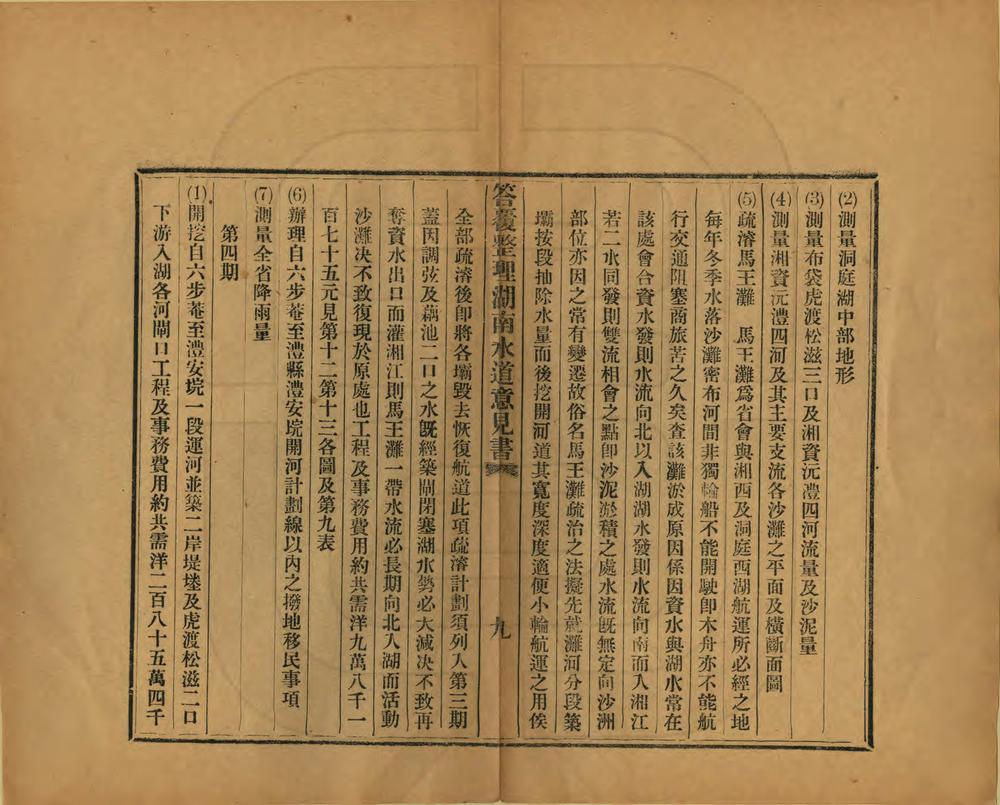 (2)測量洞庭湖中部地形
(3)測量布袋虎渡松滋三口及湘資沅澧四河流量及沙泥量
(4)測量湘資沅澧四河及其主要支流各沙灘之平面及橫斷面圖
(5)疏濬馬王灘　馬王灘爲省會與湘西及洞庭西湖航運所必經之地
每年冬季水落沙灘密布河間非獨輪船不能開駛卽木舟亦不能航
行交通阻塞商旅苦之久矣査該灘淤成原因係因資水與湖水常在
該處會合資水發則水流向北以入湖湖水發則水流向南而入湘江
若二水同發則雙流相會之點卽沙泥淤積之處水流旣無定向沙洲
部位亦因之常有變遷故俗名馬王灘疏治之法擬先就灘河分段築
壩按段抽除水量而後挖開河道其寬度深度適便小輪航運之用俟
答覆整理湖南水道意見書
九
全部疏濬後卽將各壩毀去恢復航道此項疏濬計劃須列入第三期
蓋因調弦及藕池二口之水旣經築閘閉塞湖水勢必大減決不致再
奪資水出口而灌湘江則馬王灘一帶水流必長期向北入湖而活動
沙灘决不致復現於原處也工程及事務費用約共需洋九萬八千一
百七十五元見第十二第十三各圖及第九表
(6)辦理自六步菴至澧縣澧安垸開河計劃線以內之撥地移民事項
(7)測量全省降雨量
第四期
(1)開挖自六步菴至澧安垸一段運河並築二岸堤塍及虎渡松滋二口
下游入湖各河閘口工程及事務費用約共需洋二百八十五萬四千